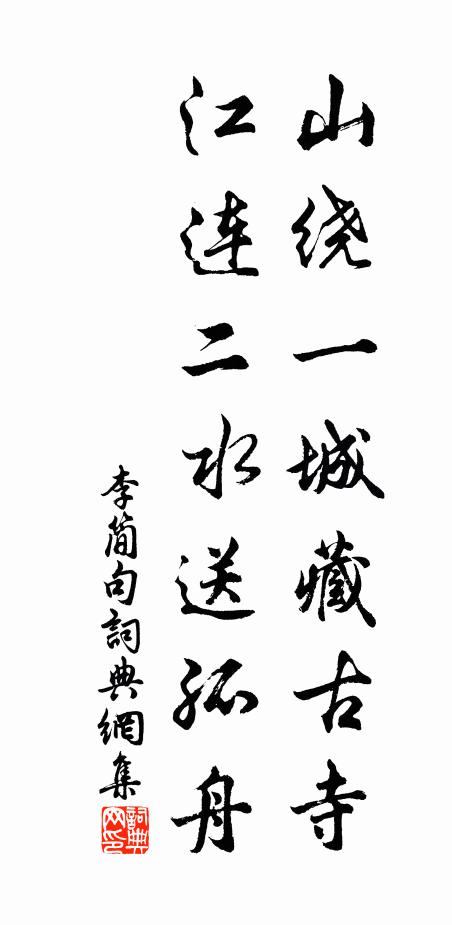 山绕一城藏古寺
江连二水送孤舟
李简句詞典網集
詞典网印